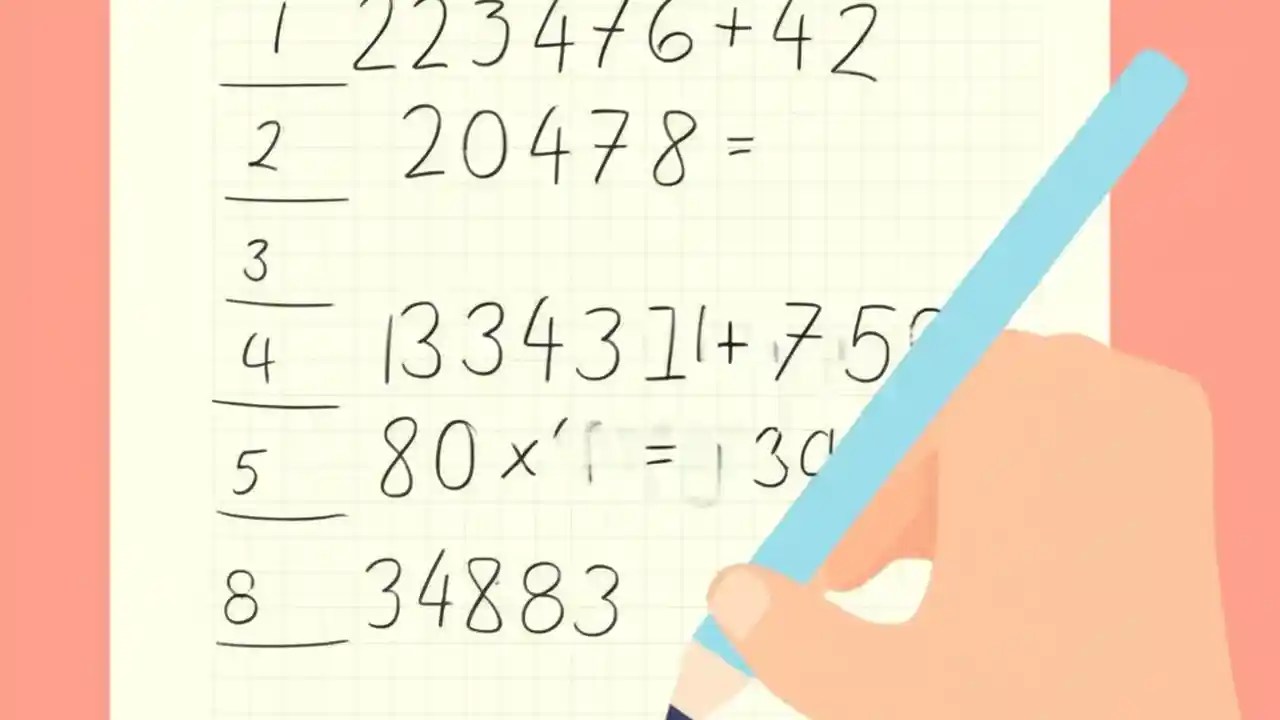 1 223476+42
2 20478=
3
4 133431+ 75
5 80 × = 30
8 34883